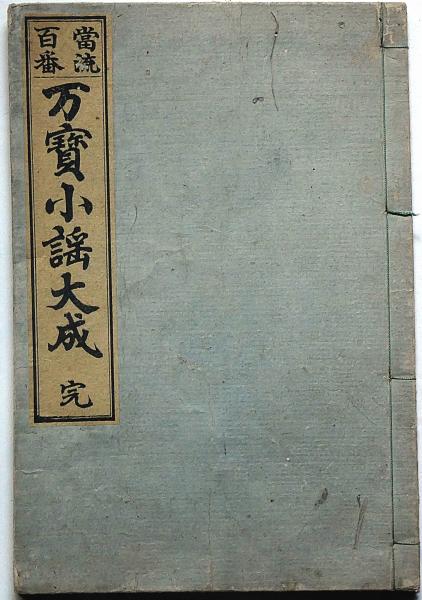 當流
百番
万寳小謡大成
完